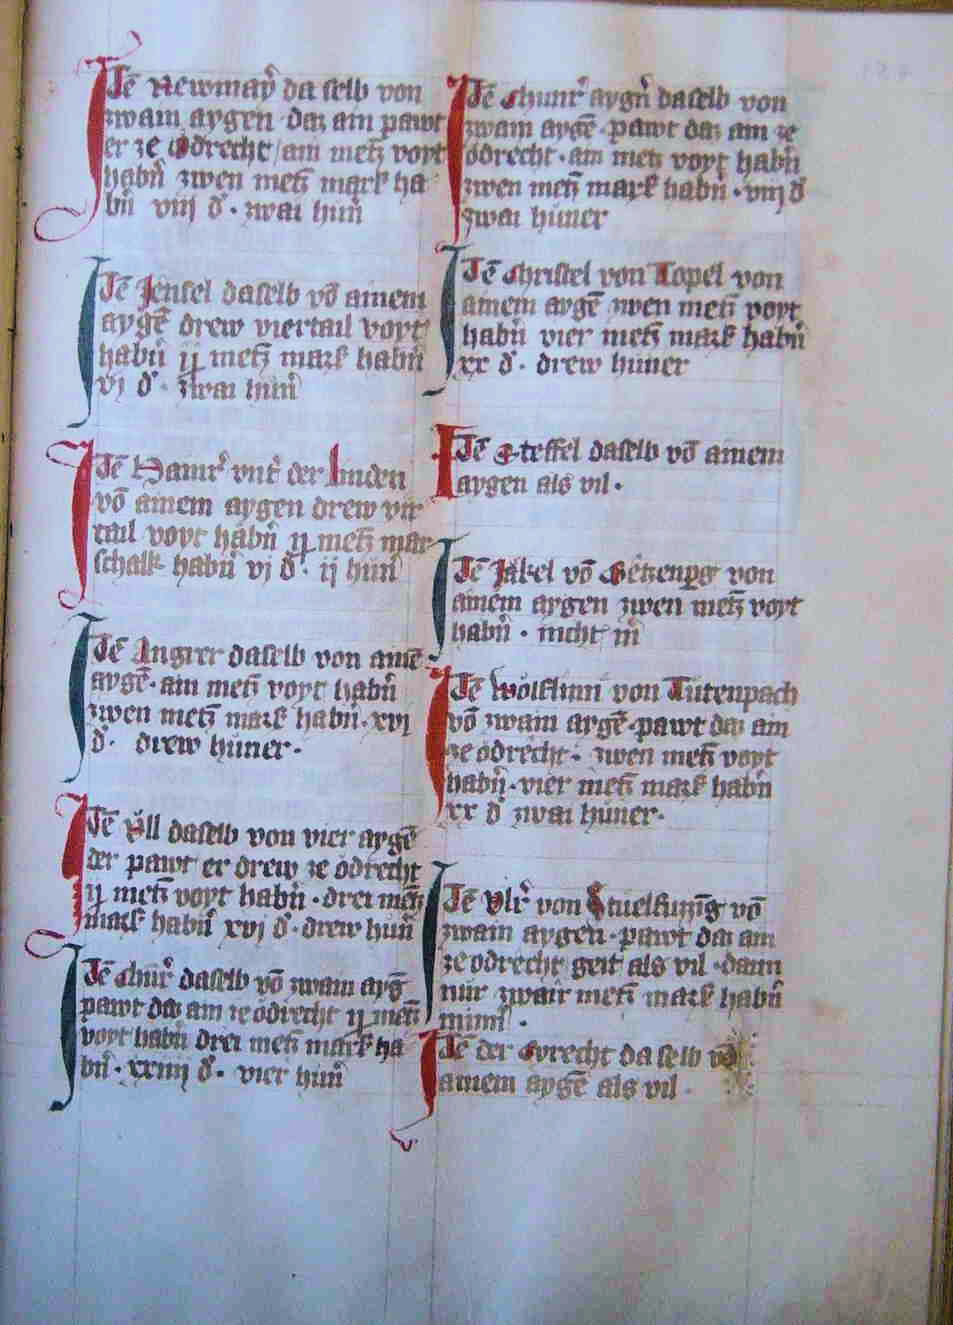 Itē Newmaẏ da selb von
zwain aygen · daz ain pawt
er ze ödrecht / ain metz voyt
habn̄ zwen metz mark ha
bn̄ viiij d᷑ · zwai hun̄
Itē Jensel daselb vō ainem
aygē drew viertail voyt
habn̄ ij metz mark habn̄
vj d᷑ · zwai hun̄
Itē Hainr̄ vnt̄ der linden
vō ainem aygen drew vir
tail voyt habn̄ ij metz mar
schalk habn̄ vj d᷑ · ij hun̄
Itē Angrer daselb von ainē
aygē · ain metz voyt habn̄
zwen metz mark habn̄ · xvj
d᷑ · drew huner ·
Itē Vll daselb von vier aygē
der pawt er drew ze ödrecht
ij metz voyt habn̄ · drei metz
mark habn̄ xvj d᷑ · drew hun̄
Itē Chūr̄ daselb vō zwain ayḡ
pawt daz ain ze ödrecht ij metz
voyt habn̄ drei metz mark ha
bn̄ · xxiiij d᷑ · vier hun̄
Itē Chunr̄ aygn̄ daselb von
zwain aygē · pawt daz ain ze
ödrecht · ain metz voyt habn̄
zwen metz mark habn̄ · viiij d᷑
zwai huner
Itē Christel von Topel von
ainem aygē zwen metz voyt
habn̄ vier metz mark habn̄
xx d᷑ · drew huner
Itē Steffel daselb vō ainem
aygen als vil ·
Itē Jakel vō von
ainem aygen zwen metz voyt
habn̄ · nicht m̄
Itē Wölflinn von Tutenpach
vō zwain aygē · pawt daz ain
ze ödrecht · zwen metz voyt
habn̄ · vier metz mark habn̄
xx d᷑ zwai huner ·
Itē Vlr̄ von vō
zwain aygen · pawt daz ain
ze ödrecht geit als vil · dann
nur zwair metz mark habn̄
minn̄ ·
Itē der daselb vō
ainem aygē als vil ·